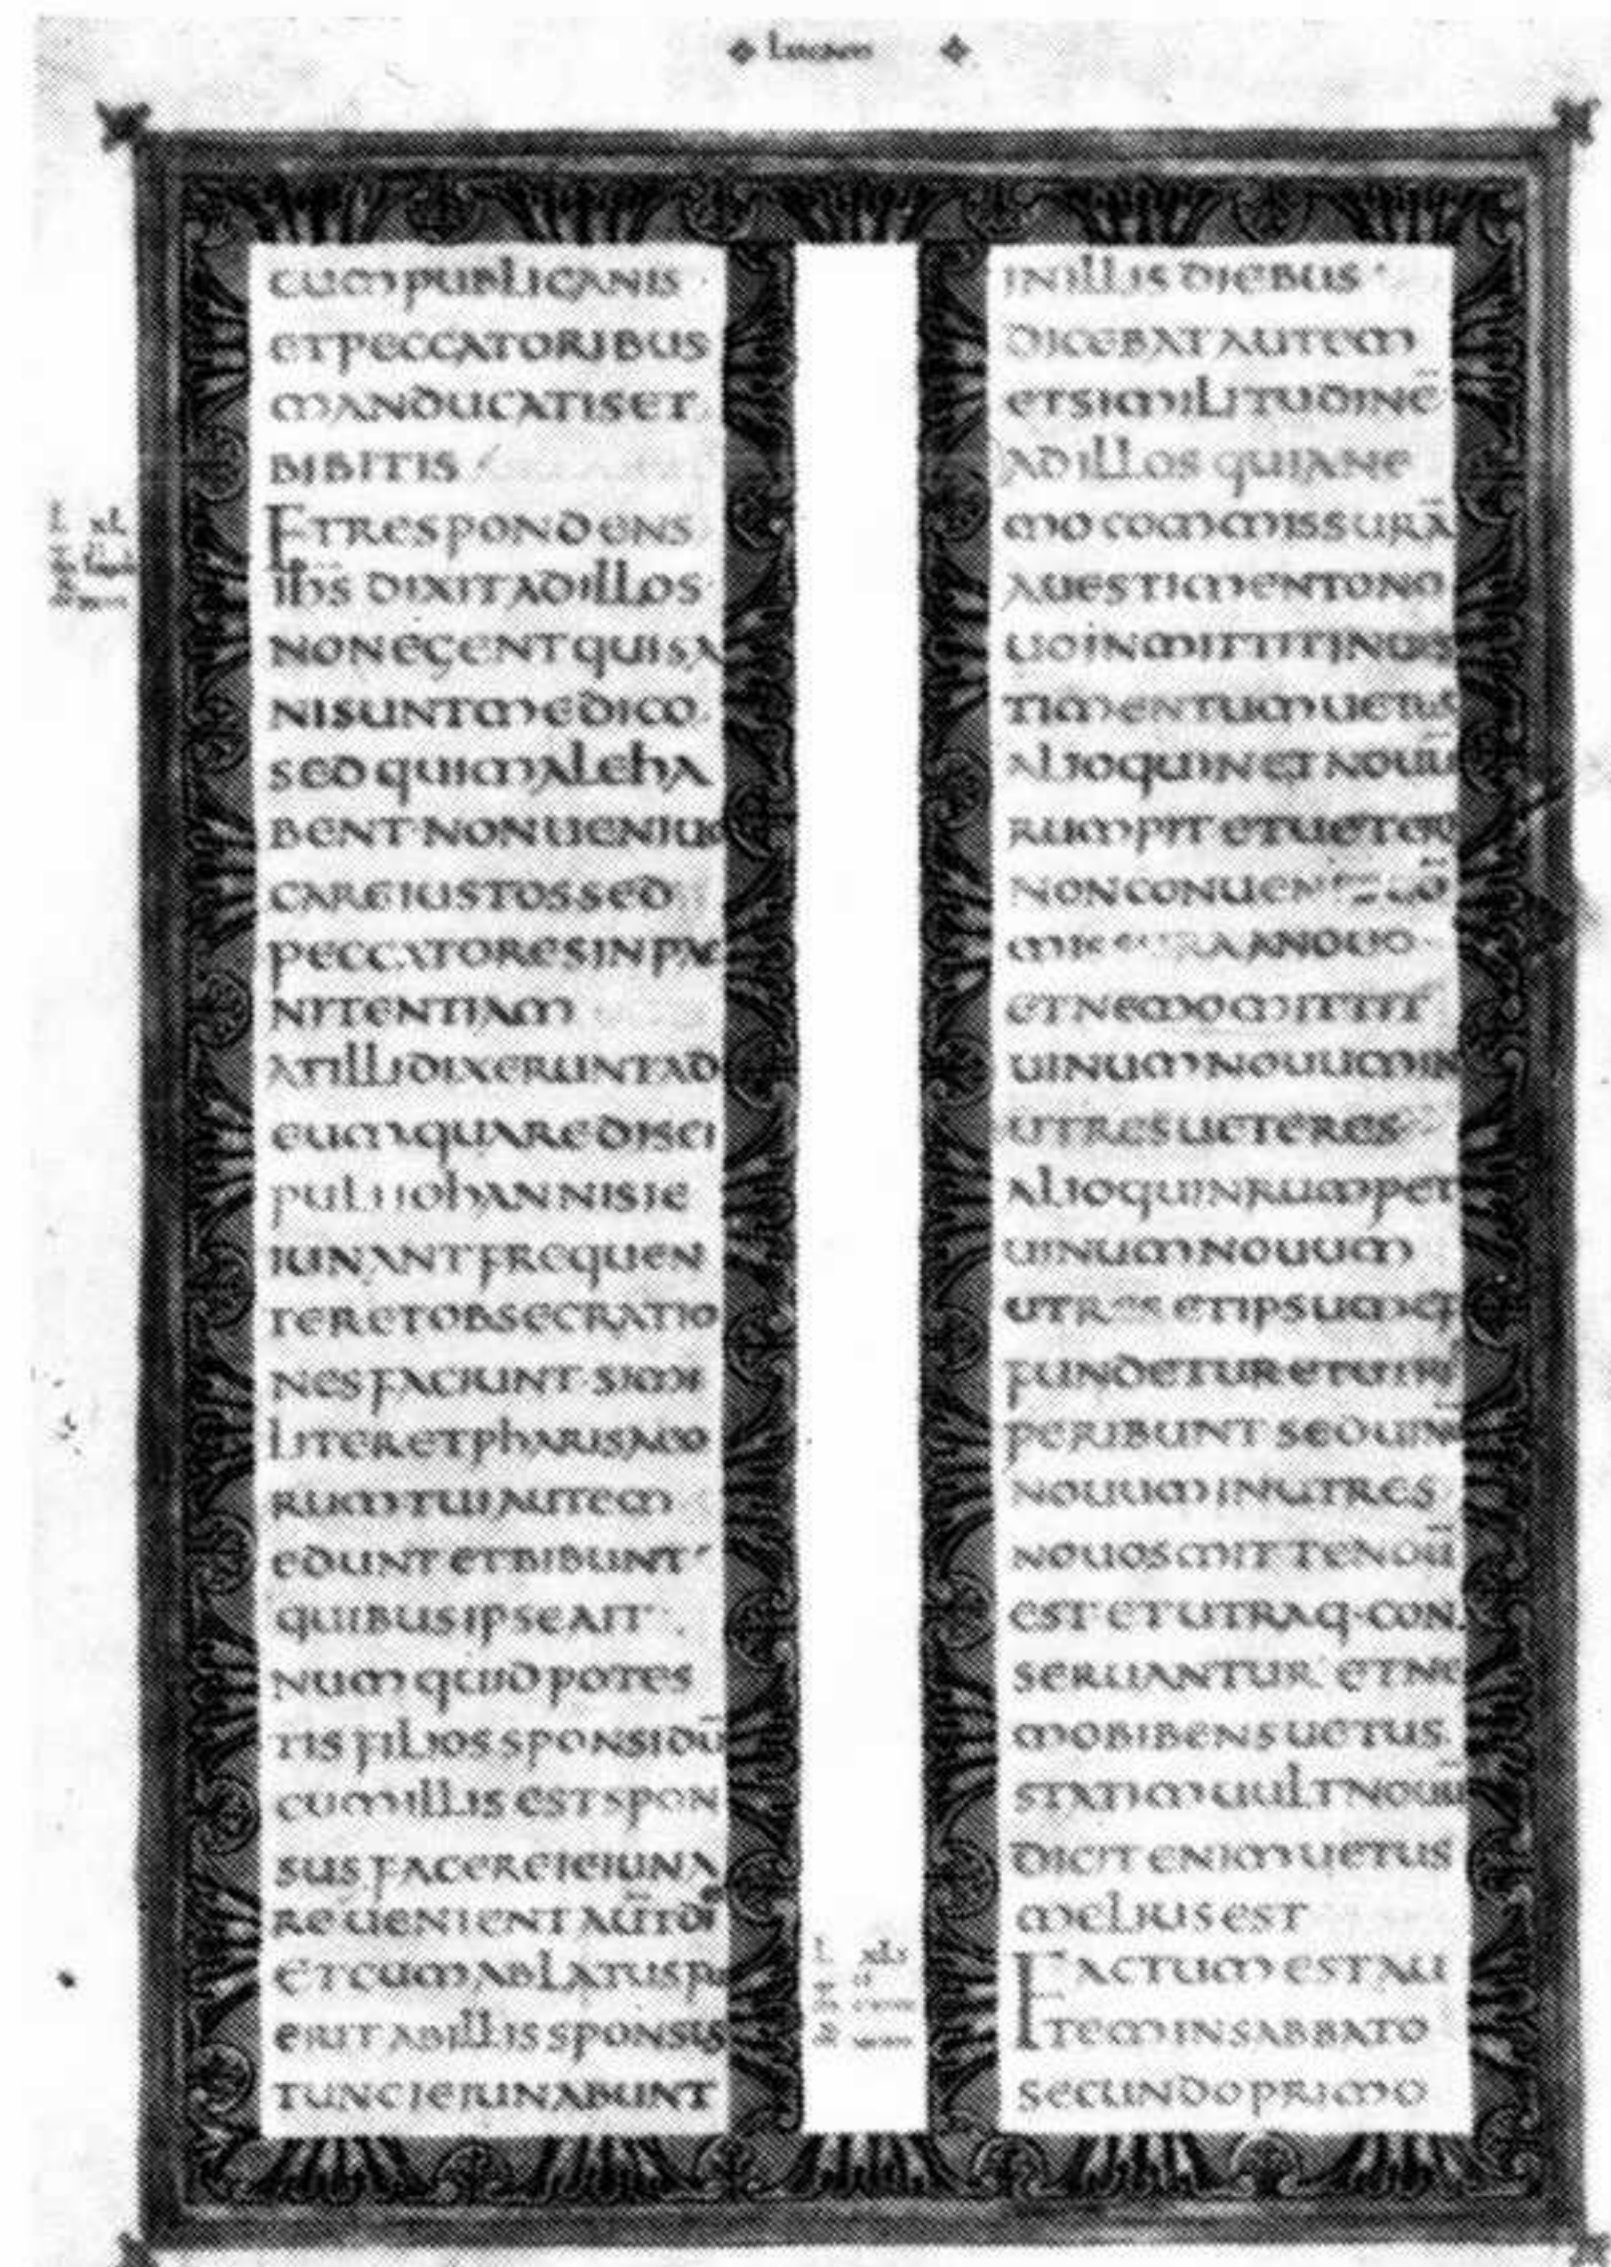 CUM PUBLICANIS
ET PECCATORIBUS
MANDUCATIS ET
BIBITIS
ET RESPONDENS
IHS̄ DIXIT AD ILLOS
NON EGENT QUI SA
NI SUNT MEDICO
SED QUI MALE HA
BENT NON UENI UO
CARE IUSTOS SED
PECCATORES IN PAE
NITENTIAM
AT ILLI DIXERUNT AD
EUM QUARE DISCI
PULI IOHANNIS IE
IUNANT FREQUEN
TER ET OBSECRATIO
NES FACIUNT SIMI
LITER ET PHARISAEO
RUM TUI AUTEM
EDUNT ET BIBUNT
QUIBUS IPSE AIT
NUMQUID POTES
TIS FILIOS SPONSI DŪ
CUM ILLIS EST SPON
SUS FACERE IEIUNA
RE UENIENT AUT̄ DIE
ET CUM ABLATUS FU
ERIT AB ILLIS SPONSUS
TUNC IEIUNABUNT
IN ILLIS DIEBUS
DICEBAT AUTEM
ET SIMILITUDINĒ
AD ILLOS QUIA NE
MO COMMISSURĀ
A UESTIMENTO NO
UO INMITTIT IN UES
TIMENTUM UETUS
ALIOQUIN ET NOUŪ
RUMPIT ET UETERI
NON CONUENIT CŌ
MISSURA A NOUO
ET NEMO MITTIT
UINUM NOUUM IN
UTRES UETERES
ALIOQUIN RUMPET
UINUM NOUUM
UTRES ET IPSUM EF
FUNDETUR ET UTRES
PERIBUNT SED UINŪ
NOUUM IN UTRES
NOUOS MITTENDŪ
EST ET UTRAQ· CON
SERUANTUR ET NE
MO BIBENS UETUS
STATIM UULT NOUŪ
DICIT ENIM UETUS
MELIUS EST
FACTUM EST AU
TEM IN SABBATO
SECUNDO PRIMO